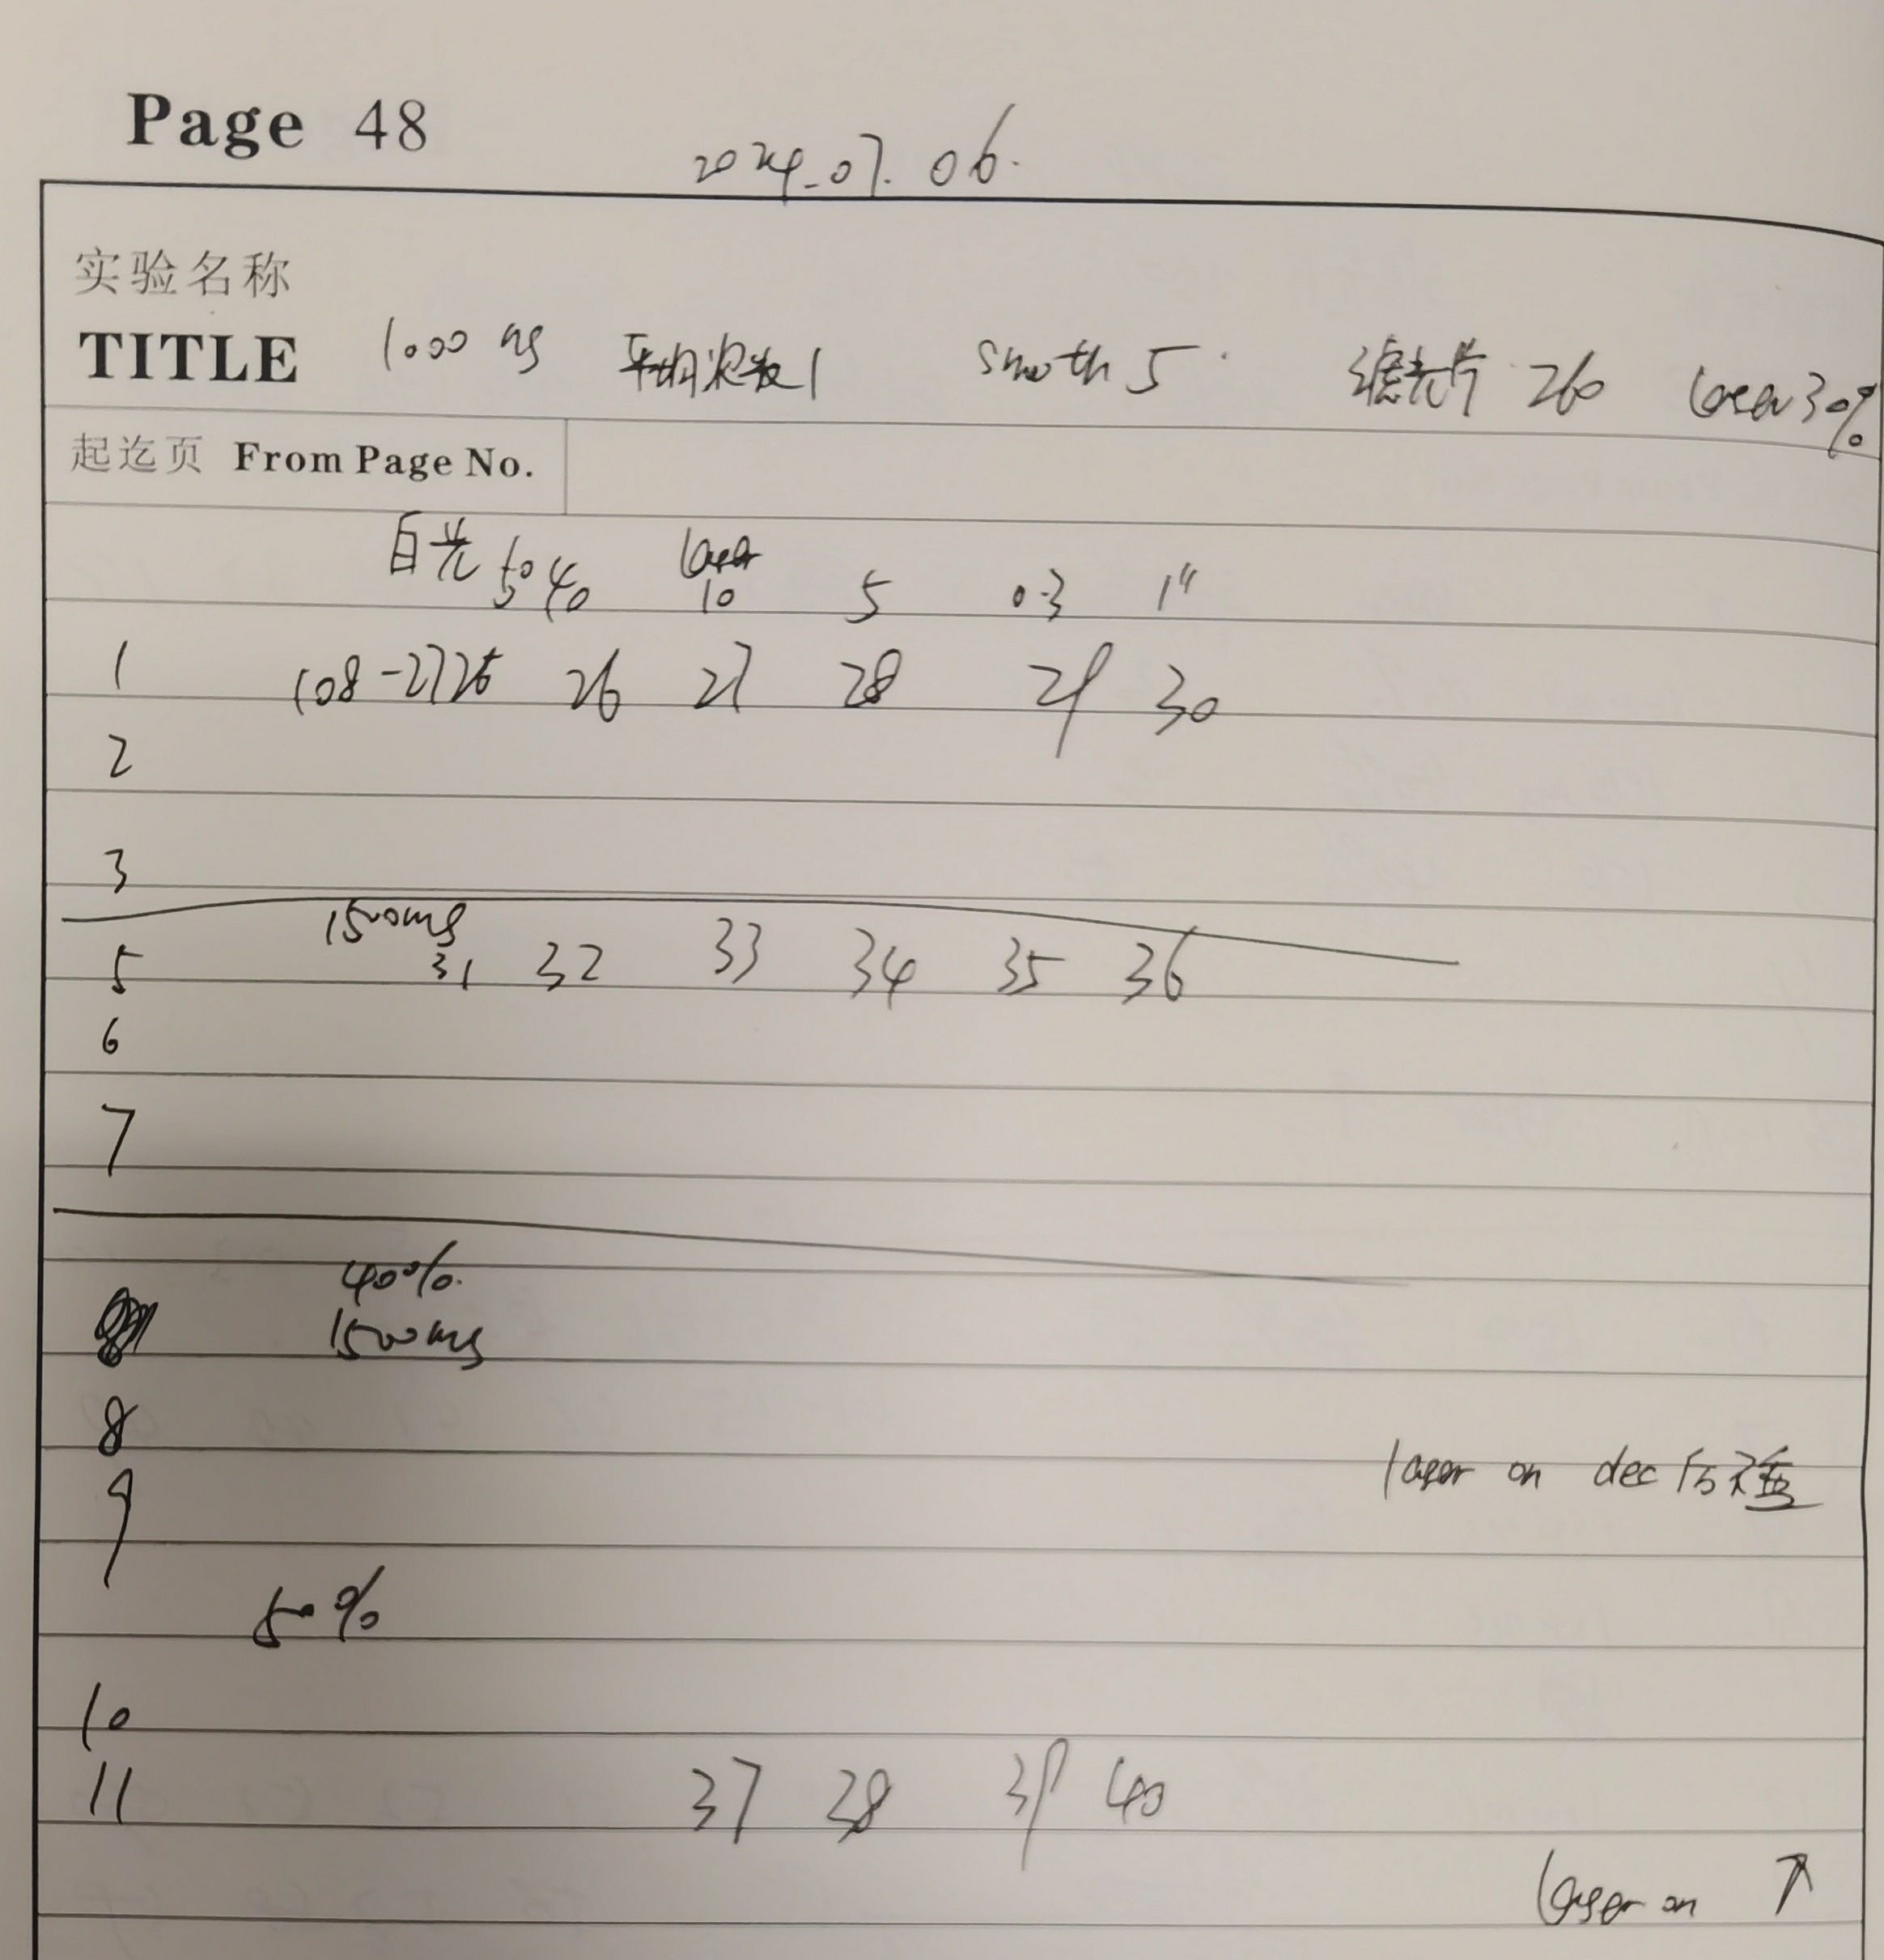 Page 48
2024.07.06.
实验名称
TITLE 1000 ms 平均次数1 Smooth 5 滤光片 260 laser 30%
起迄页 From Page No.
白光 50 40 laser 10 5 0.3 1"
1 (08-27) 25 26 27 28 29 30
2
3
1500ms
5 31 32 33 34 35 36
6
7
40%
1500ms
8
9
laser on dec 后
50%
10
11 37 38 39 40
laser on ↑